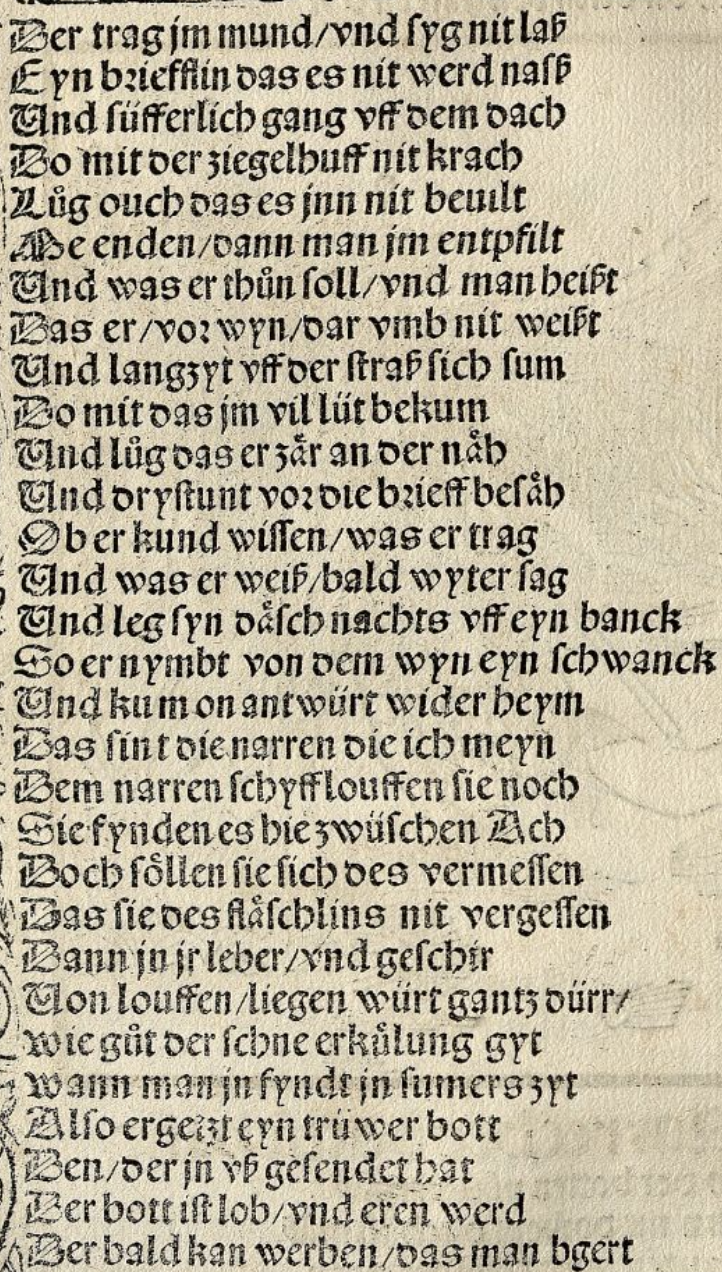 Der trag jm mund/vnd ſyg nit laß
Eyn briefflin das es nit werd naſß
Vnd ſüfferlich gang vff dem dach
Do mit der ziegelhuff nit krach
Lůg ouch das es jnn nit beuilt
Me enden/dann man jm entpfilt
Vnd was er thůn ſoll/vnd man heißt
Das er/vor wyn/dar vmb nit weißt
Vnd langzyt vff der ſtraß ſich ſum
Do mit das jm vil lüt bekum
Vnd lůg das er zår an der nåh
Vnd dryſtunt vor die brieff beſåh
Ob er kund wiſſen/was er trag
Vnd was er weiß/bald wyter ſag
Vnd leg ſyn dåſch nachts vff eyn banck
So er nymbt von dem wyn eyn ſchwanck
Vnd kum on antwürt wider heym
Das ſint die narren die ich meyn
Dem narren ſchyff louffen ſie noch
Sie fynden es hie zwüſchen Ach
Doch ſöllen ſie ſich des vermeſſen
Das ſie des fläſchlins nit vergeſſen
Dann jn jr leber/vnd geſchir
Von louffen/liegen würt gantz dürr/
wie gůt der ſchne erkůlung gyt
wann man jn fyndt jn ſumers zyt
Alſo ergetzt eyn trüwer bott
Den/der jn vß geſendet hat
Der bott iſt lob/vnd eren werd
Der bald kan werben/das man bgert